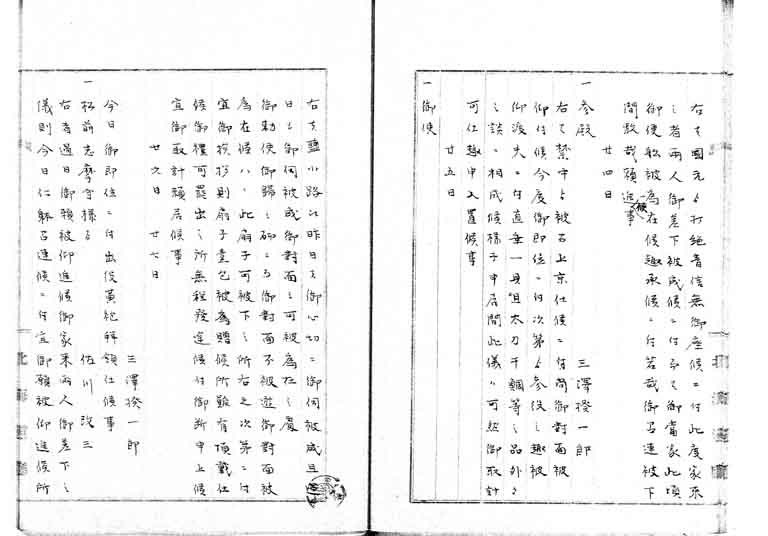 右者国元ゟ打絶音信無御座候ニ付此度家来
之者両人御差下被成候ニ付而者御当家此頃
御使船被為在候趣承候ニ付若哉御召連被下
間敷哉頼進候事
廿四日
一 参殿 三澤揆一郎
右者禁中ゟ被召上京仕候ニ付尚御対面被
仰付候今度御即位ニ付次第ゟ参役之趣被
仰渡夫々付直垂一具但太刀千疋等之品外ゟ
之談ニ相成候様子申居間此儀ハ可然御取計
可仕趣申入置候事
廿五日
一 御使
右者鹽小路江昨日者御心切ニ御伺被成旦
日者御伺被成御対面も可被為在之處
御勅使御歸之砌ニ而御対面不被遊御対面被
為在候ハヽ此扇子可被下之所右之次第ニ付
宜御挨拶則扇子壹包被為贈候所難有頂戴仕
候御禮可罷出之所無程發途候付御断申上候
宜御取計頼居候事
廿六日 廿七日
三澤揆一郎
今日御即位ニ付出役黄袍拝領仕候事
一 松前志摩守様ゟ 佐川政三
右者過日御頼被仰進候御家来両人御差下之
儀則今日仁躰召連候ニ付宜御頼被仰進候所